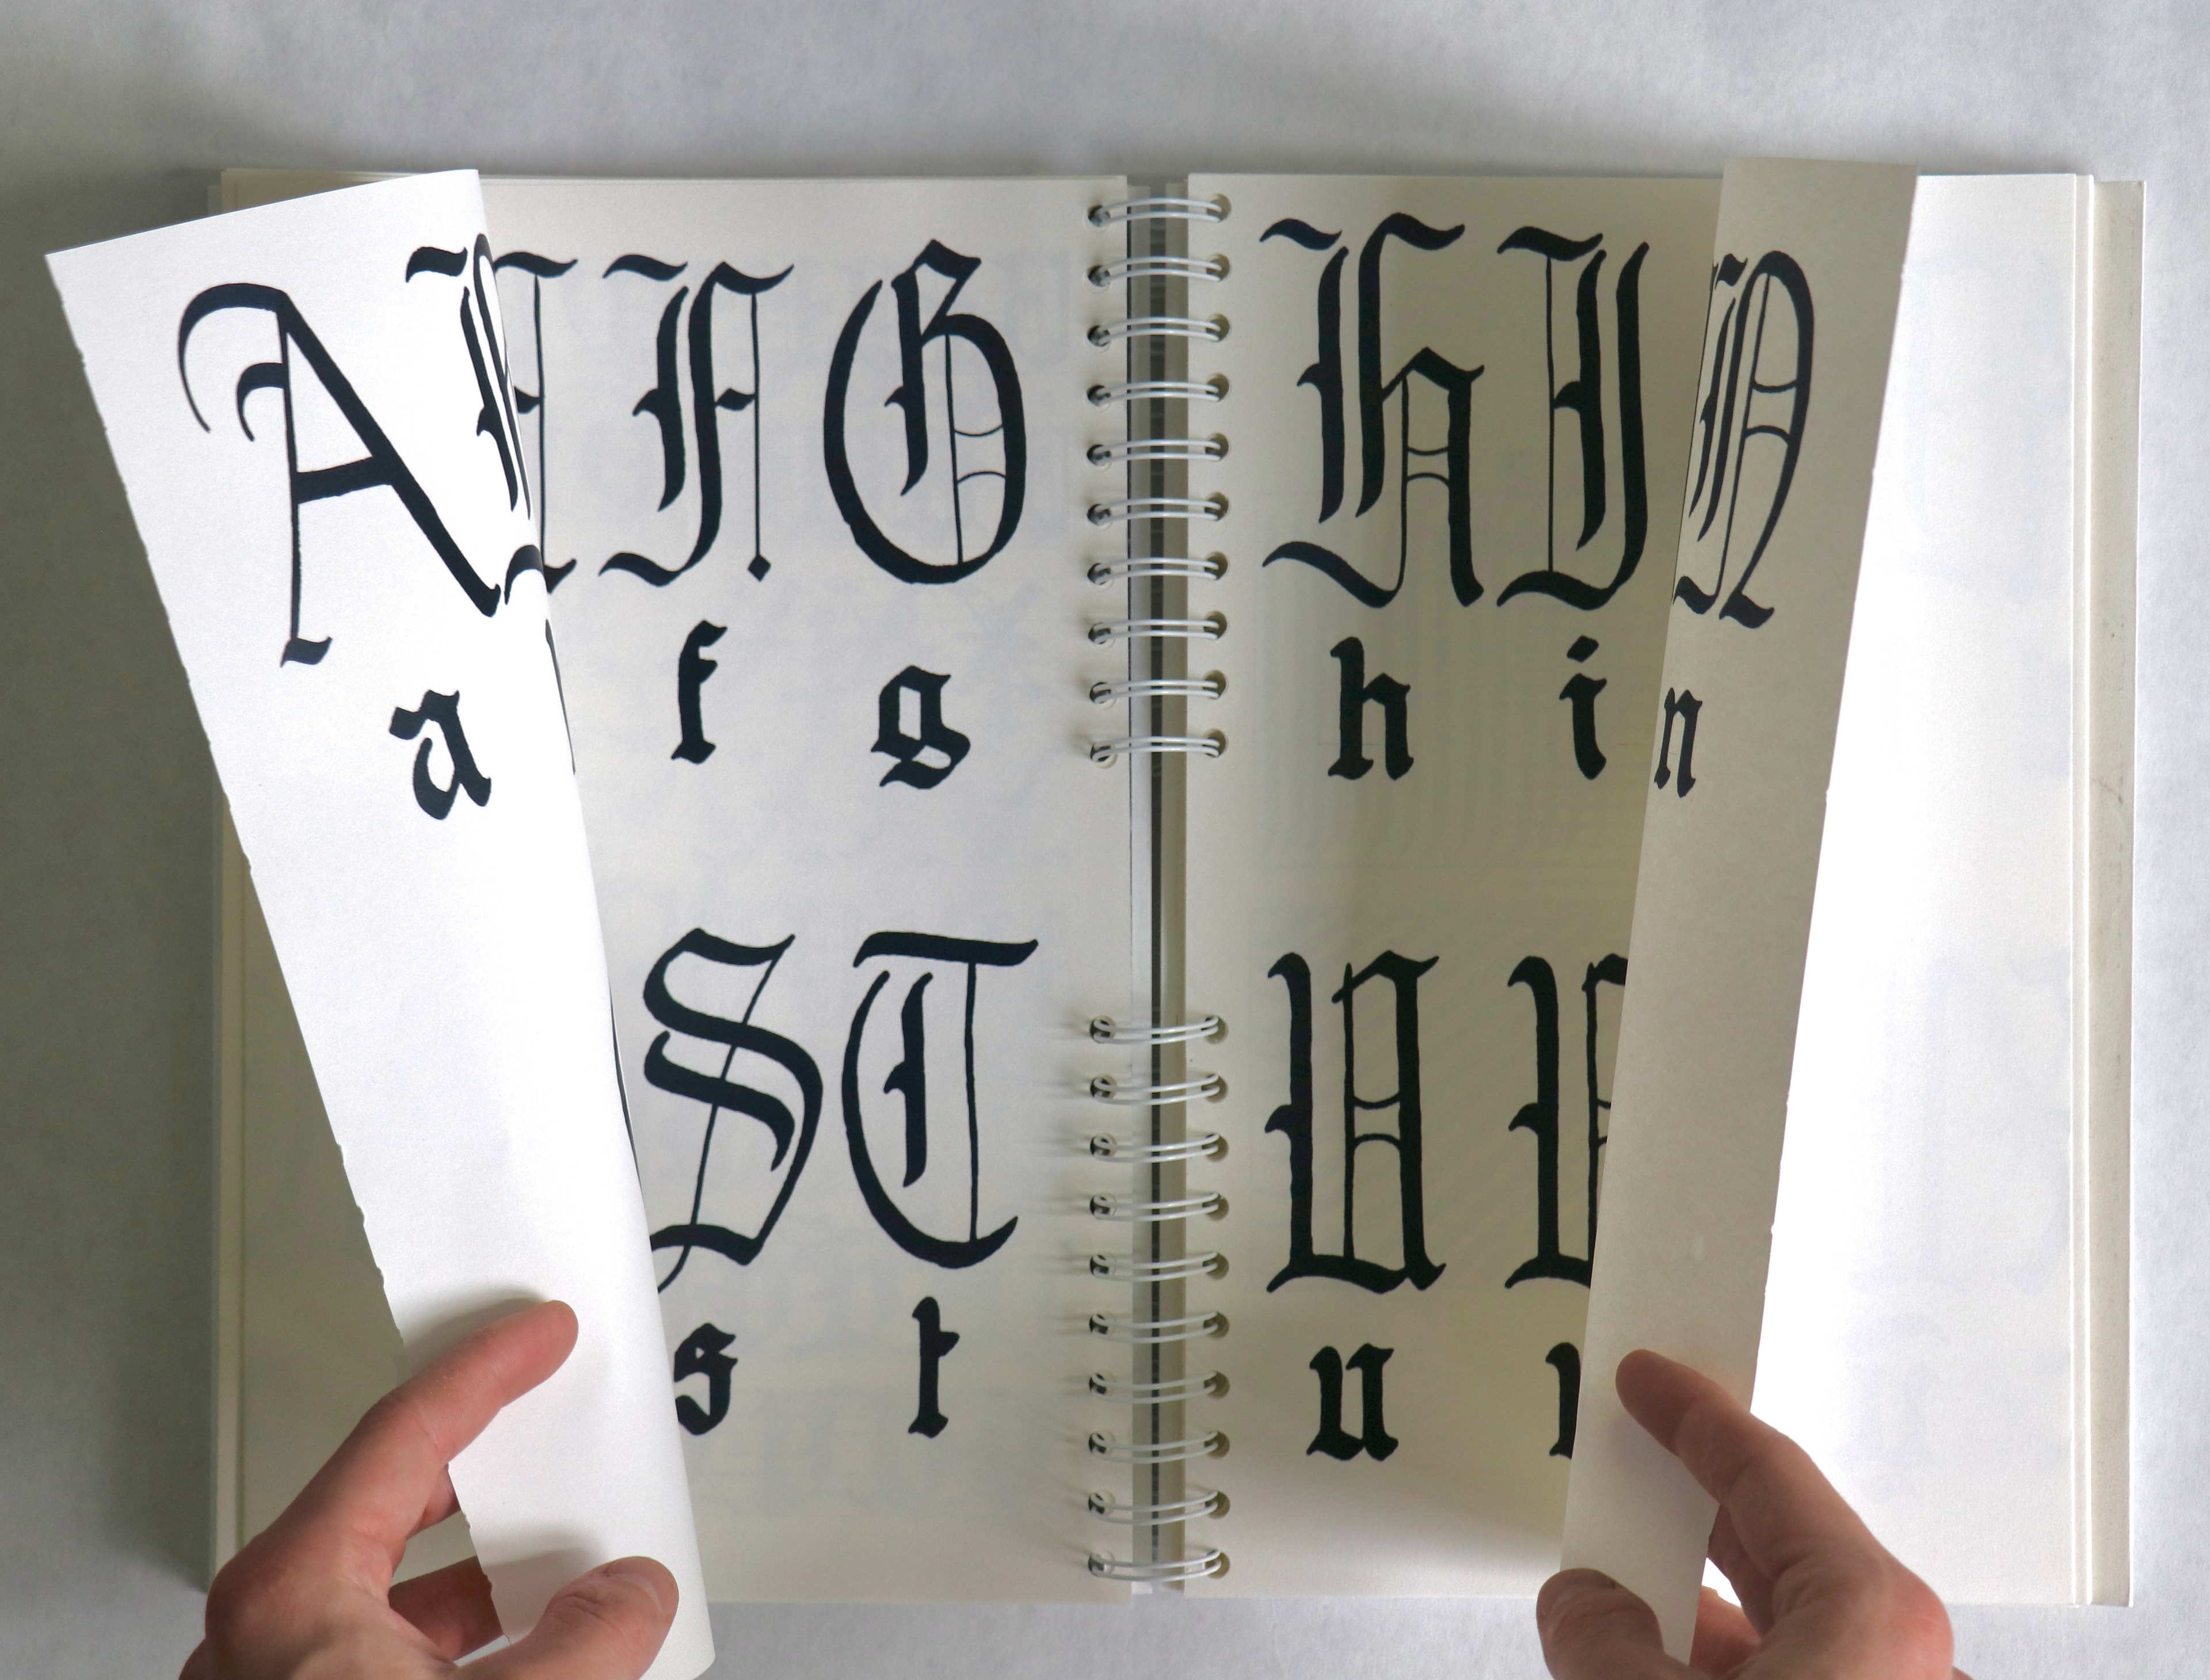 A F G H I N
a f g h i n
S T U
s t u